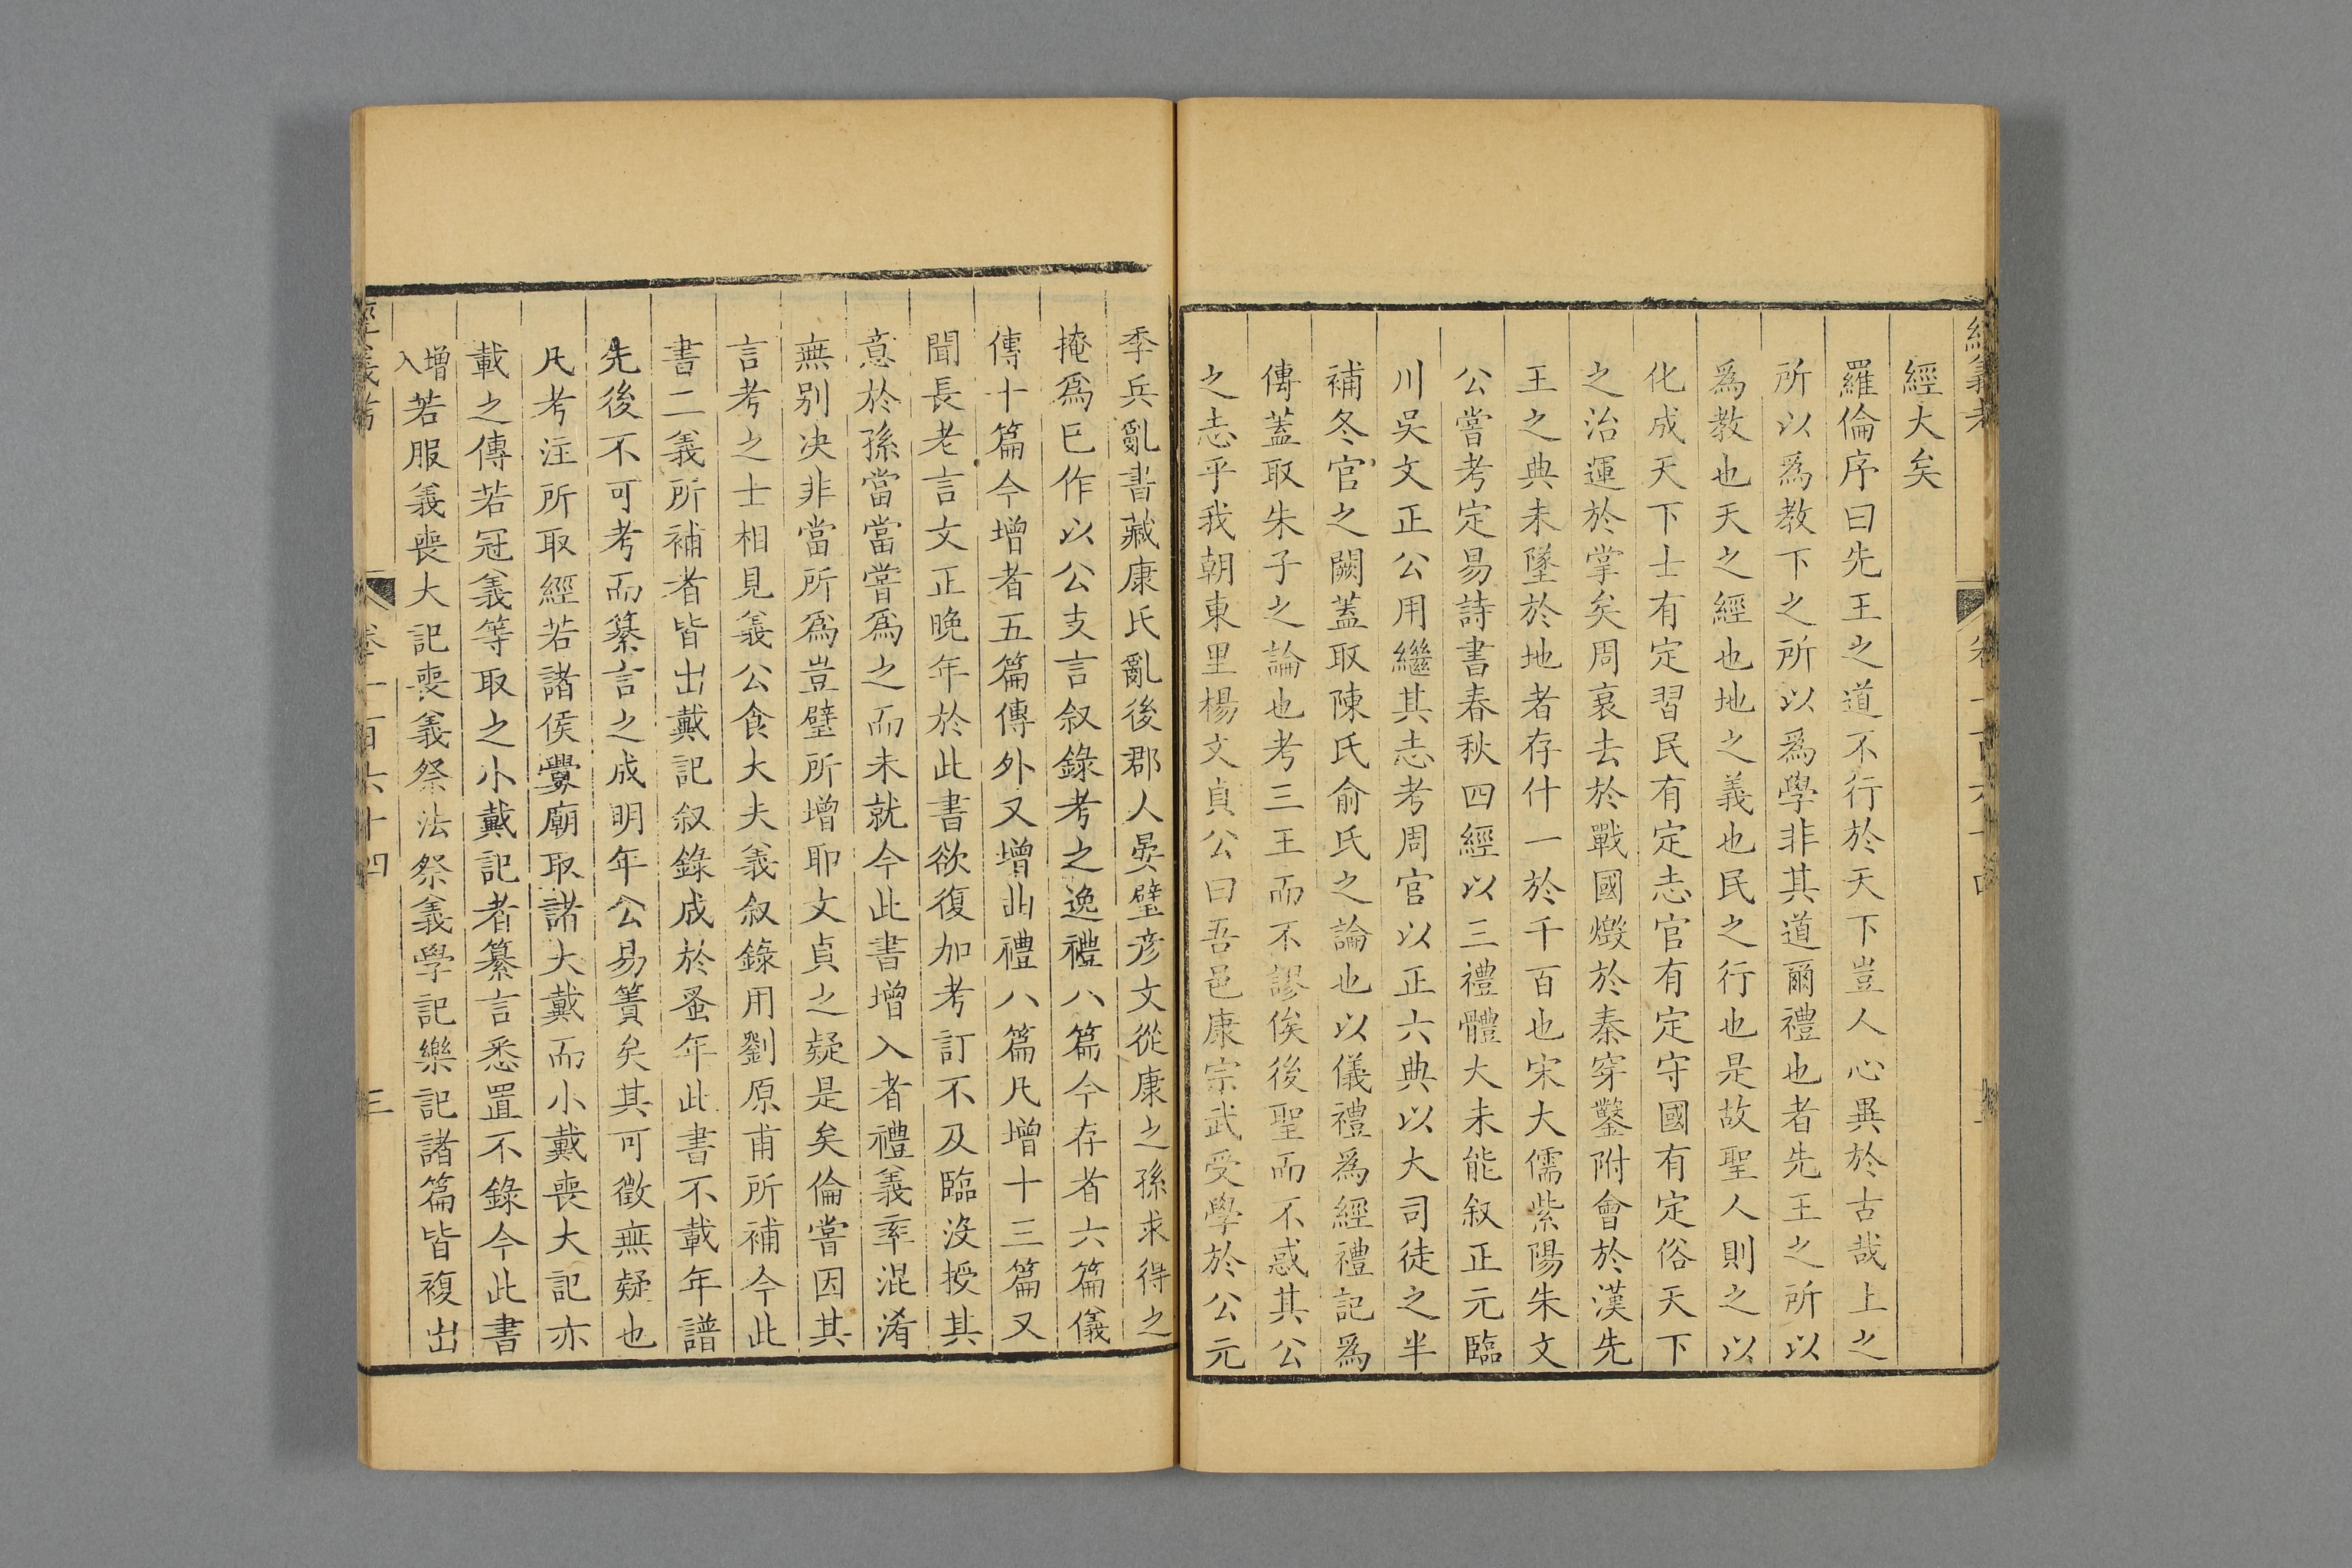 經大矣
羅倫序曰先王之道不行於天下豈人心異於古哉上之
所以爲教下之所以爲學非其道爾禮也者先王之所以
爲教也天之經也地之義也民之行也是故聖人則之以
化成天下士有定習民有定志官有定守國有定俗天下
之治運於掌矣周衰去於戰國燬於秦穿鑿附會於漢先
王之典未墜於地者存什一於千百也宋大儒紫陽朱文
公嘗考定易詩書春秋四經以三禮體大未能叙正元臨
川吳文正公用繼其志考周官以正六典以大司徒之半
補冬官之闕蓋取陳氏俞氏之論也以儀禮爲經禮記爲
傳蓋取朱子之論也考三王而不謬俟後聖而不惑其公
之志乎我朝東里楊文貞公曰吾邑康宗武受學於公元
季兵亂書藏康氏亂後郡人晏璧彦文從康之孫求得之
掩爲已作以公支言叙錄考之逸禮八篇今存者六篇儀
傳十篇今增者五篇傳外又增曲禮八篇凡增十三篇又
聞長老言文正晩年於此書欲復加考訂不及臨没授其
意於孫當當嘗爲之而未就今此書增入者禮義率混淆
無别决非當所爲豈璧所增耶文貞之疑是矣倫嘗因其
言考之士相見義公食大夫義叙錄用劉原甫所補今此
書二義所補者皆出戴記叙錄成於蚤年此書不載年譜
先後不可考而纂言之成明年公易簀矣其可徵無疑也
凡考注所取經若諸侯釁廟取諸大戴而小戴喪大記亦
載之傳若冠義等取之小戴記者纂言悉置不錄今此書
增入若服義喪大記喪義祭法祭義學記樂記諸篇皆複出
經義考 卷一百六十四 三